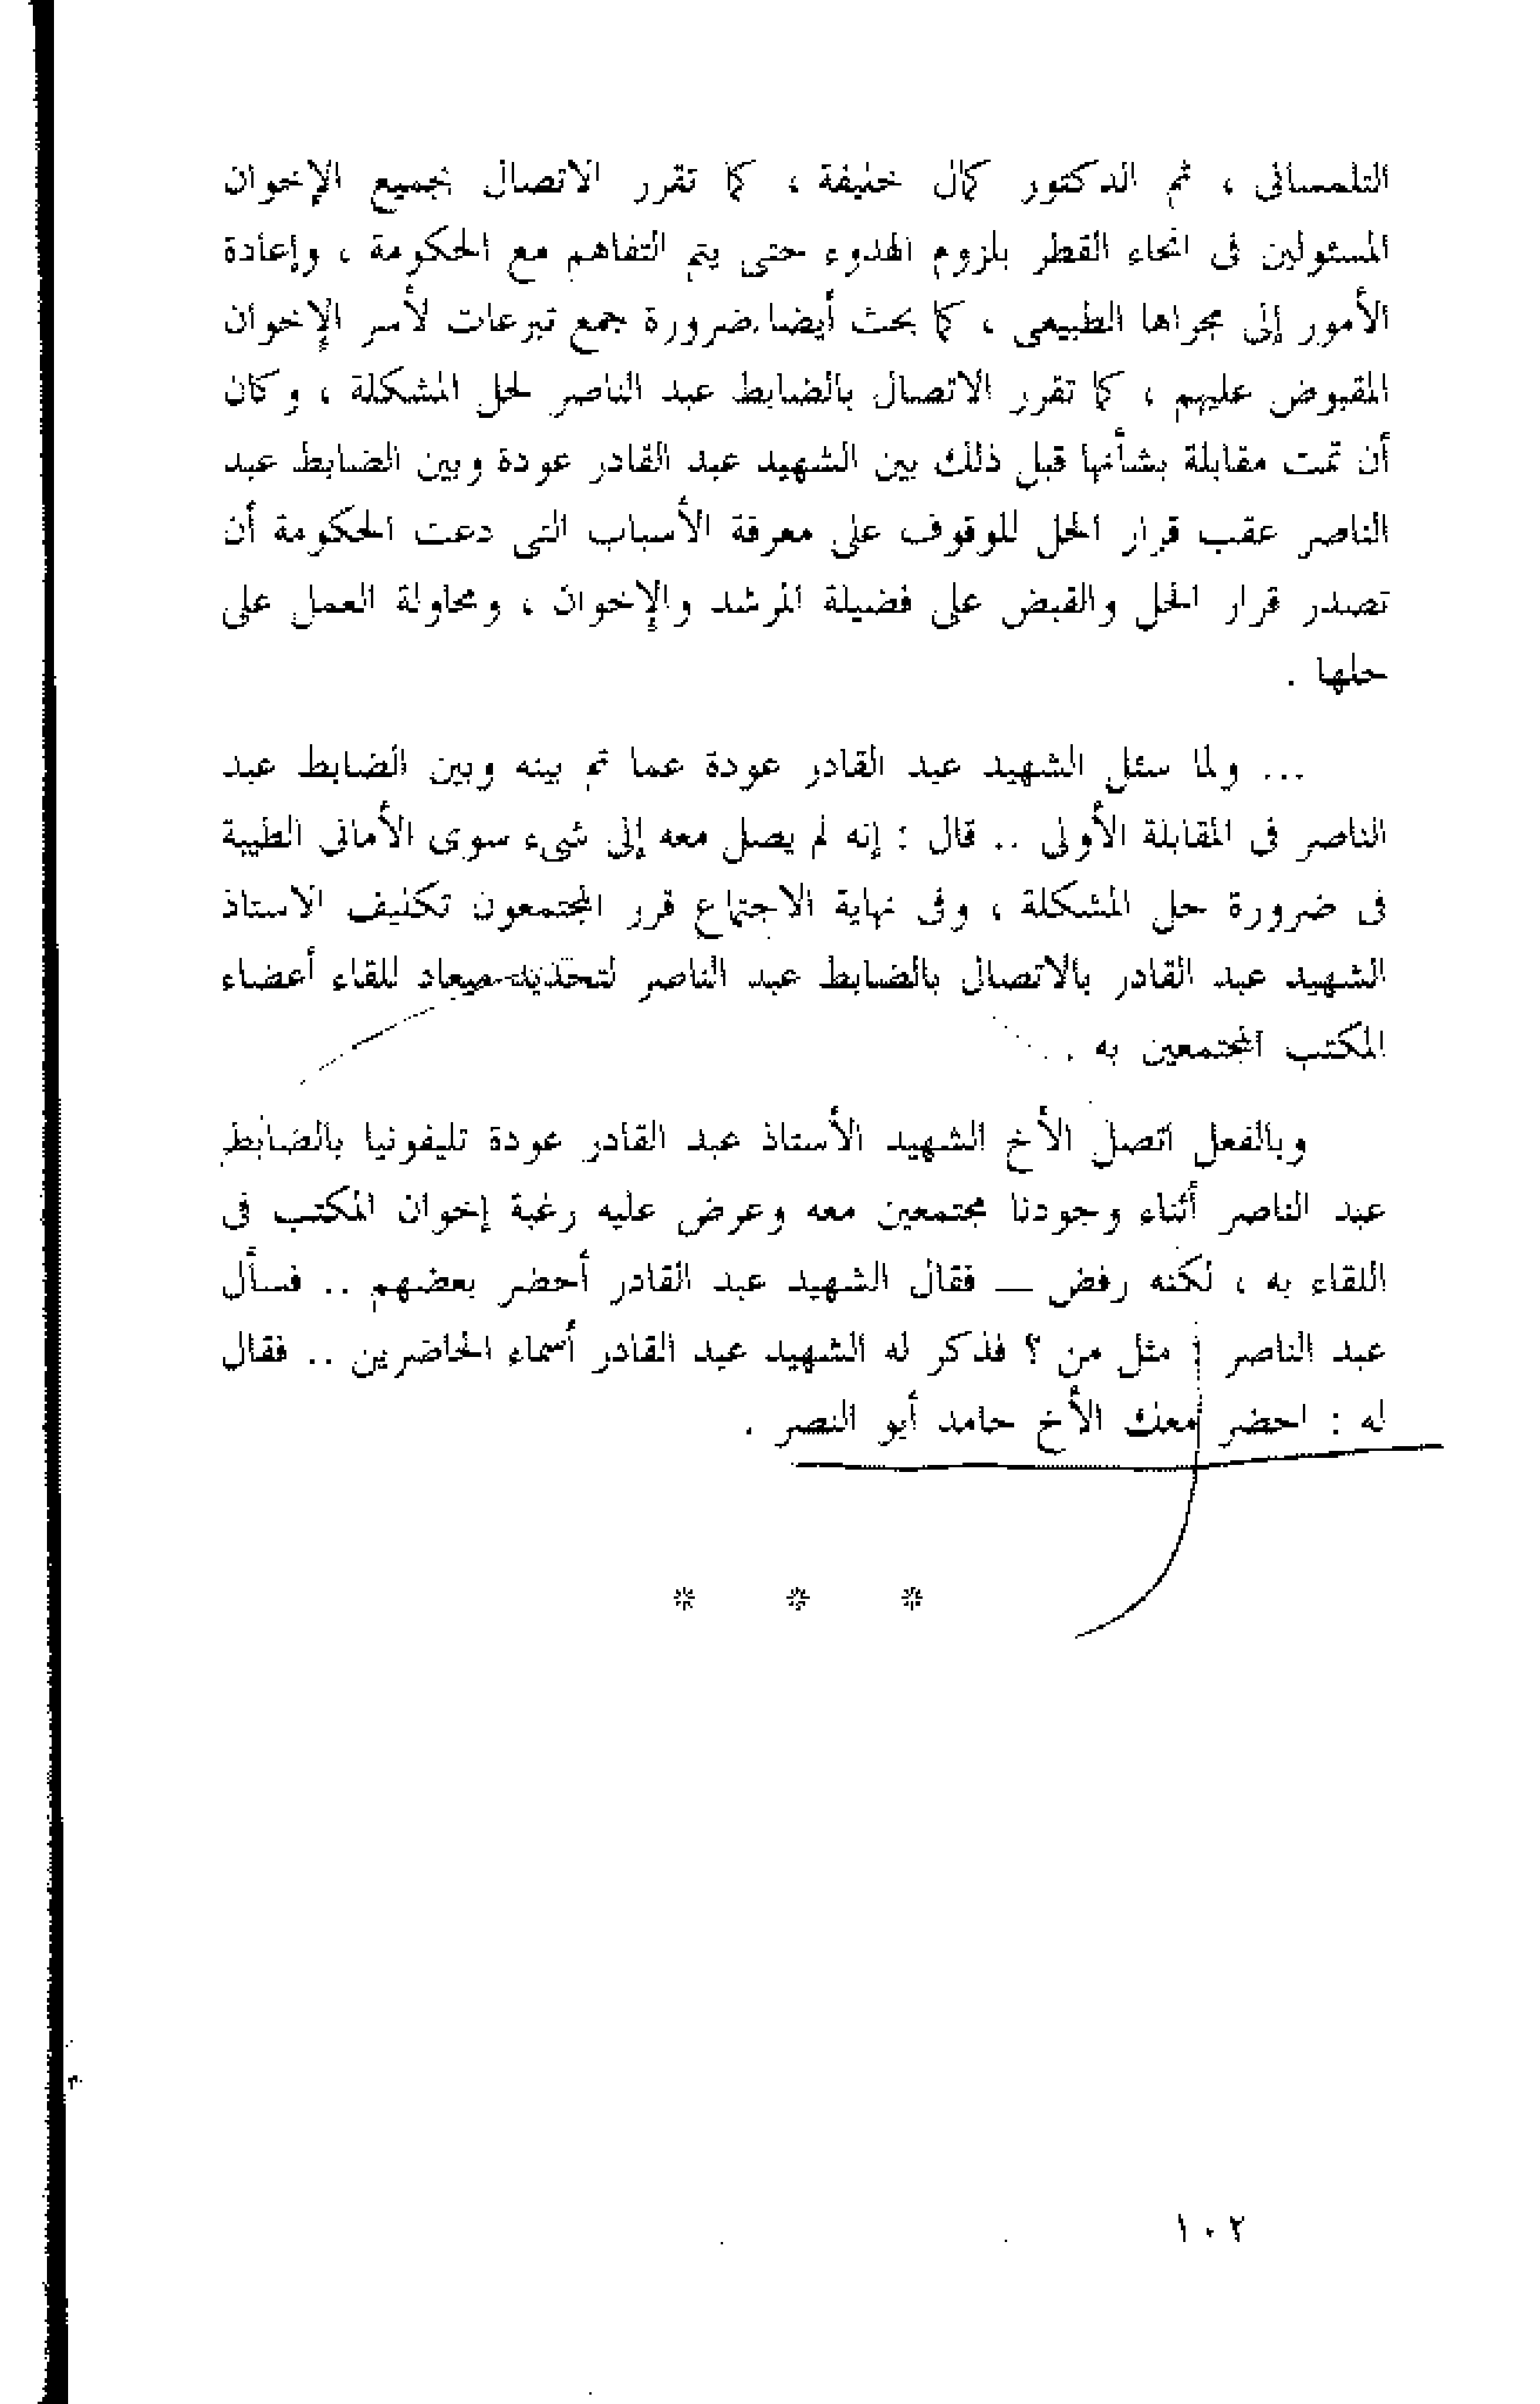 التلمسانى ، ثم الدكتور كمال خليفة ، كما تقرر الاتصال بجميع الإخوان
المسئولين فى انحاء القطر بلزوم الهدوء حتى يتم التفاهم مع الحكومة ، وإعادة
الأمور إلى مجراها الطبيعى ، كما بحث أيضا ضرورة جمع تبرعات لأسر الإخوان
المقبوض عليهم ، كما تقرر الاتصال بالضابط عبد الناصر لحل المشكلة ، وكان
أن تمت مقابلة بشأنها قبل ذلك بين الشهيد عبد القادر عودة وبين الضابط عبد
الناصر عقب قرار الحل للوقوف على معرفة الأسباب التى دعت الحكومة أن
تصدر قرار الحل والقبض على فضيلة المرشد والإخوان ، ومحاولة العمل على
حلها .
... ولما سئل الشهيد عبد القادر عودة عما تم بينه وبين الضابط عبد
الناصر فى المقابلة الأولى .. قال : إنه لم يصل معه إلى شىء سوى الأمانى الطيبة
فى ضرورة حل المشكلة ، وفى نهاية الاجتماع قرر المجتمعون تكليف الاستاذ
الشهيد عبد القادر بالاتصال بالضابط عبد الناصر لتحديد ميعاد للقاء أعضاء
المكتب المجتمعين به .
وبالفعل اتصل الأخ الشهيد الأستاذ عبد القادر عودة تليفونيا بالضابط
عبد الناصر أثناء وجودنا مجتمعين معه وعرض عليه رغبة إخوان المكتب فى
اللقاء به ، لكنه رفض — فقال الشهيد عبد القادر أحضر بعضهم .. فسأل
عبد الناصر : مثل من ؟ فذكر له الشهيد عبد القادر أسماء الحاضرين .. فقال
له : احضر معك الأخ حامد أبو النصر .
* * *
١٠٢